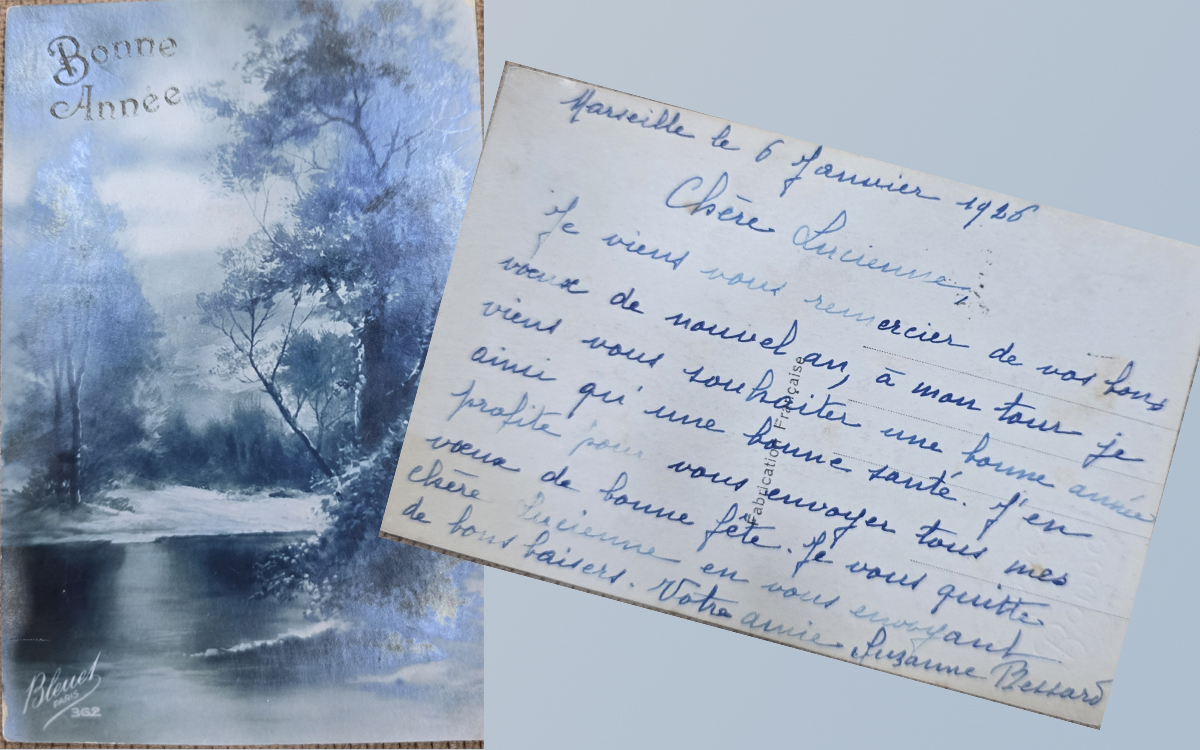 Bonne
Année
Bleuet
PARIS
362
Marseille le 6 Janvier 1926
Chère Lucienne,
Je viens vous remercier de vos bons
vœux de nouvel an, à mon tour je
viens vous souhaiter une bonne année
ainsi qu'une bonne santé. J'en
profite pour vous envoyer tous mes
vœux de bonne fête. Je vous quitte
chère Lucienne en vous envoyant
de bons baisers. Votre amie Suzanne Bessard
Fabrication Française